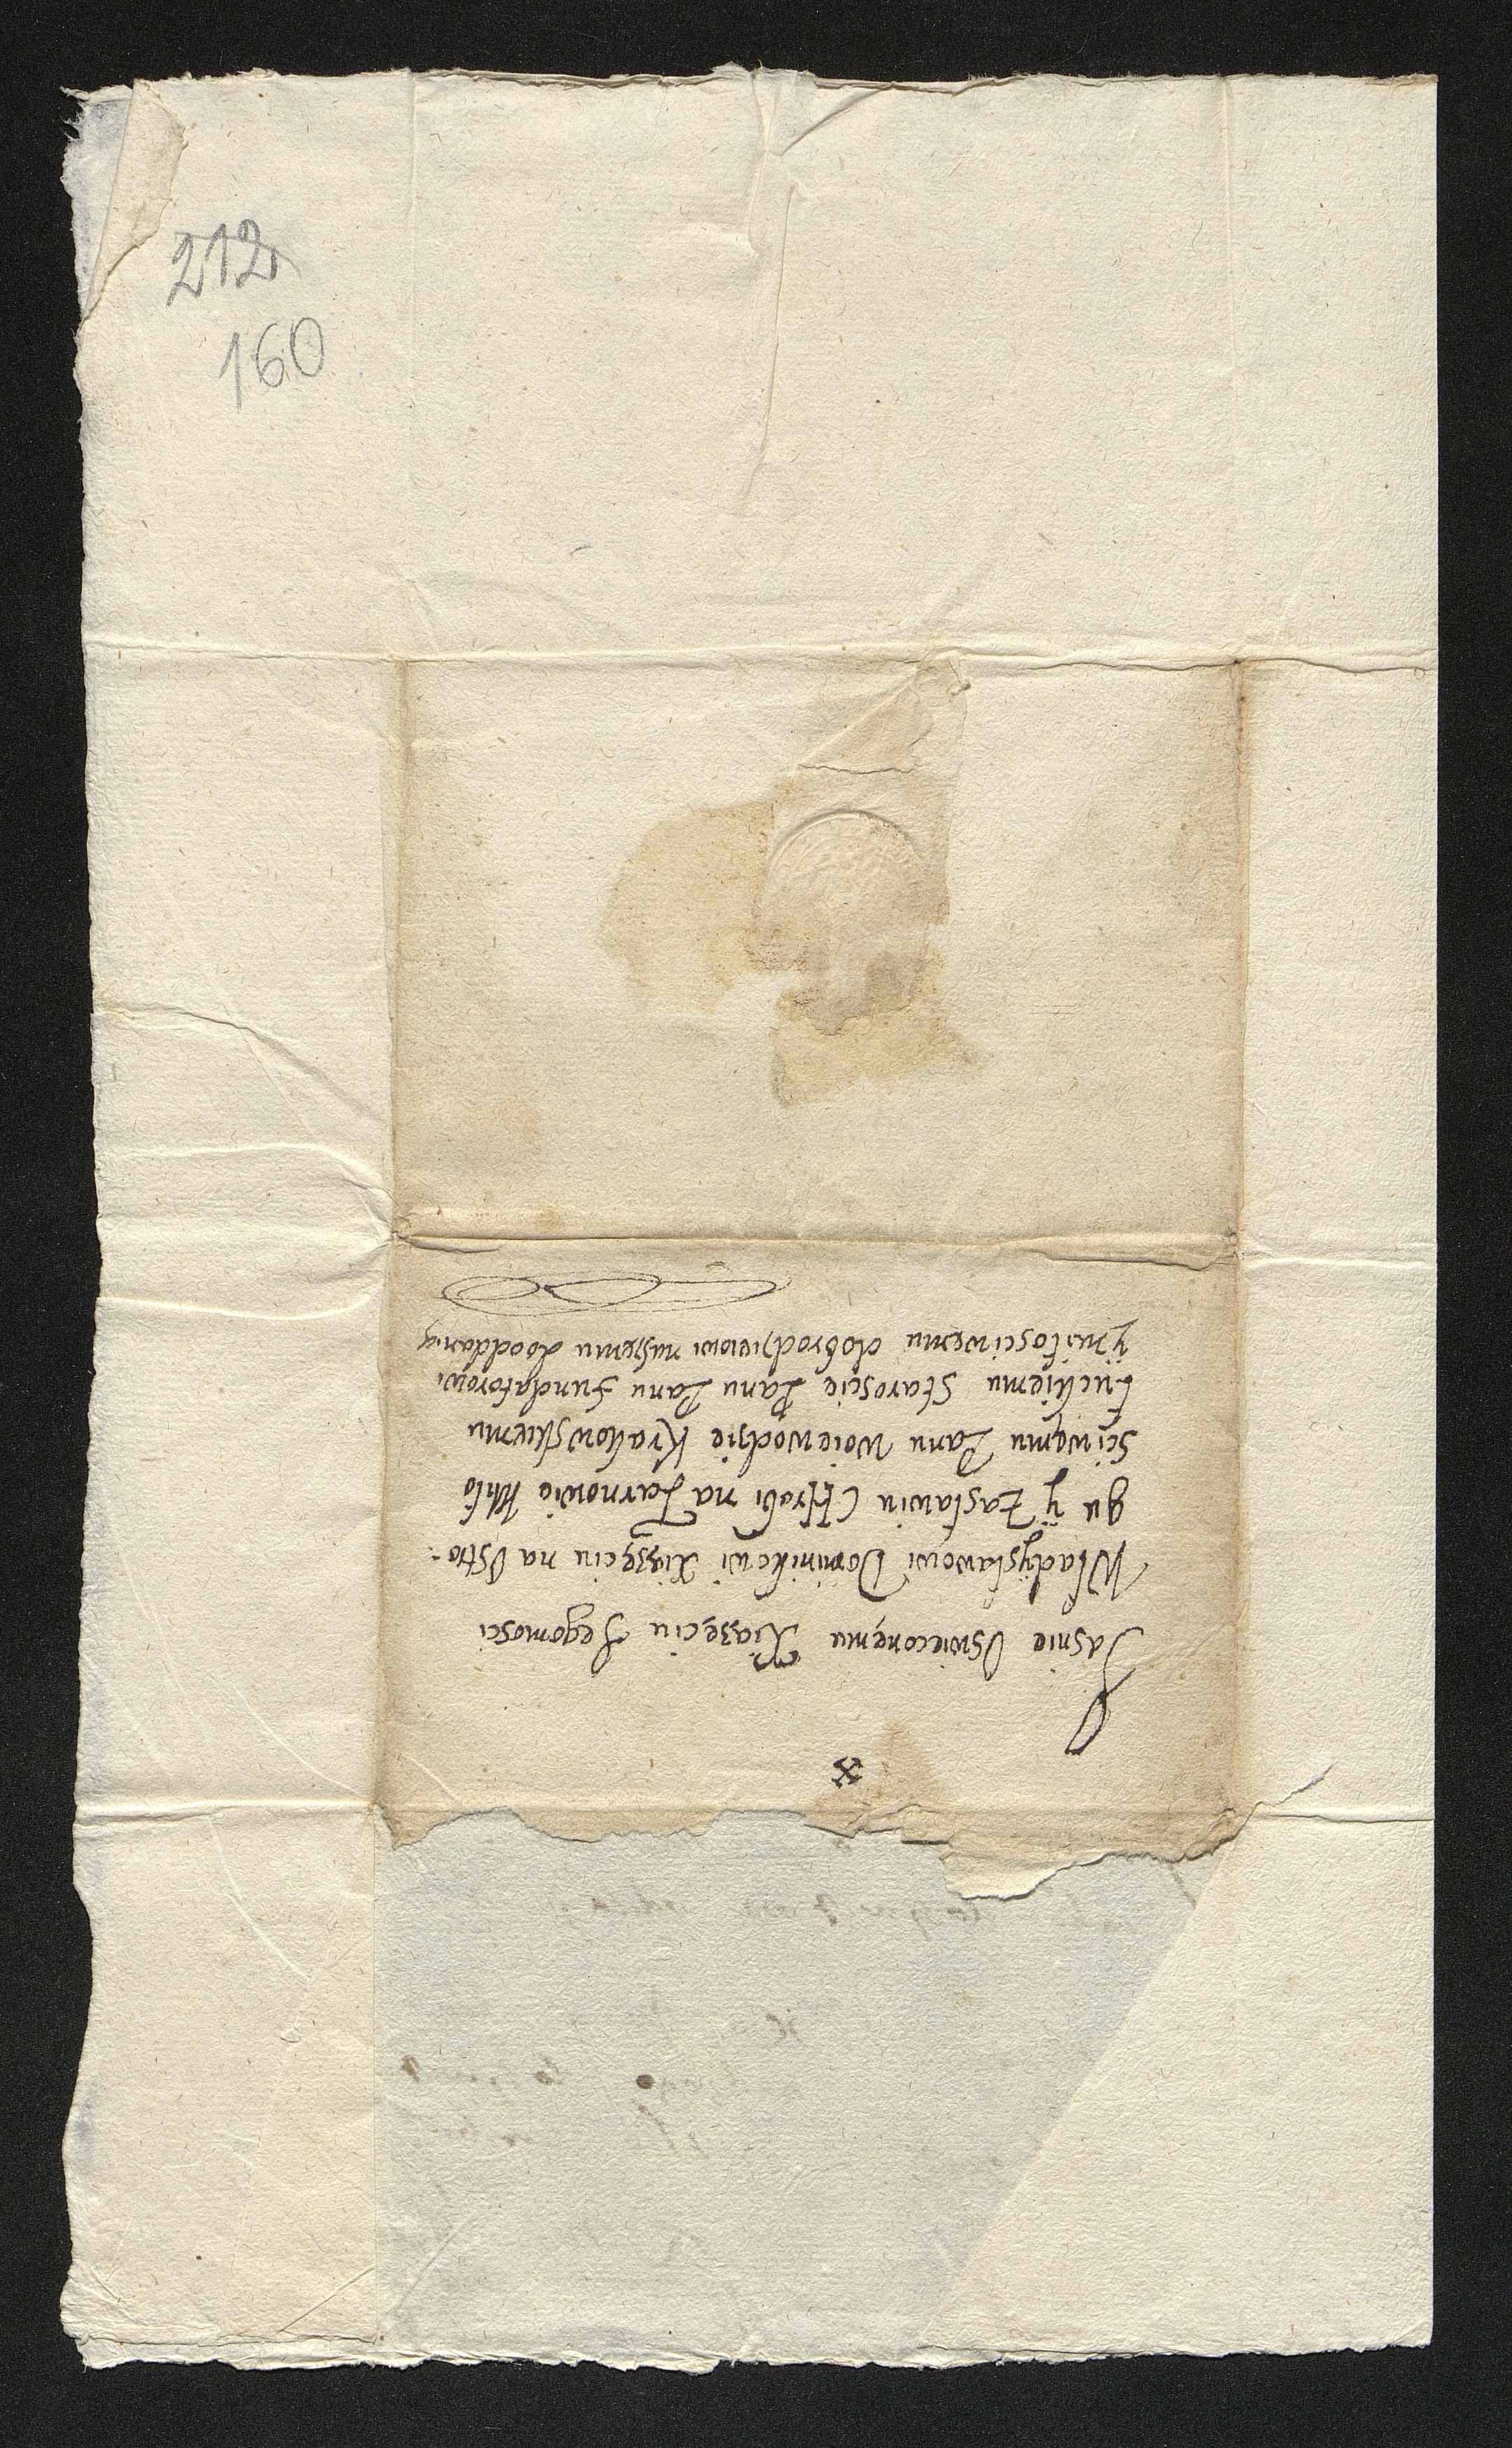 212
160
x
Jasnie Oswieconęmu Xiązęciu Jegomosci
Władÿsławowi Dominikowi Xiązęciu na Ostro-
gu ÿ Zasławiu Chrabi na Tarnowie Mło
sciwęmu Panu Woiewodzie Krakowskiemu
Łuckiemu Staroscie Panu Panu Fundatorowi
ÿ miłosciwemu dobrodzieiowi naszemu dooddania